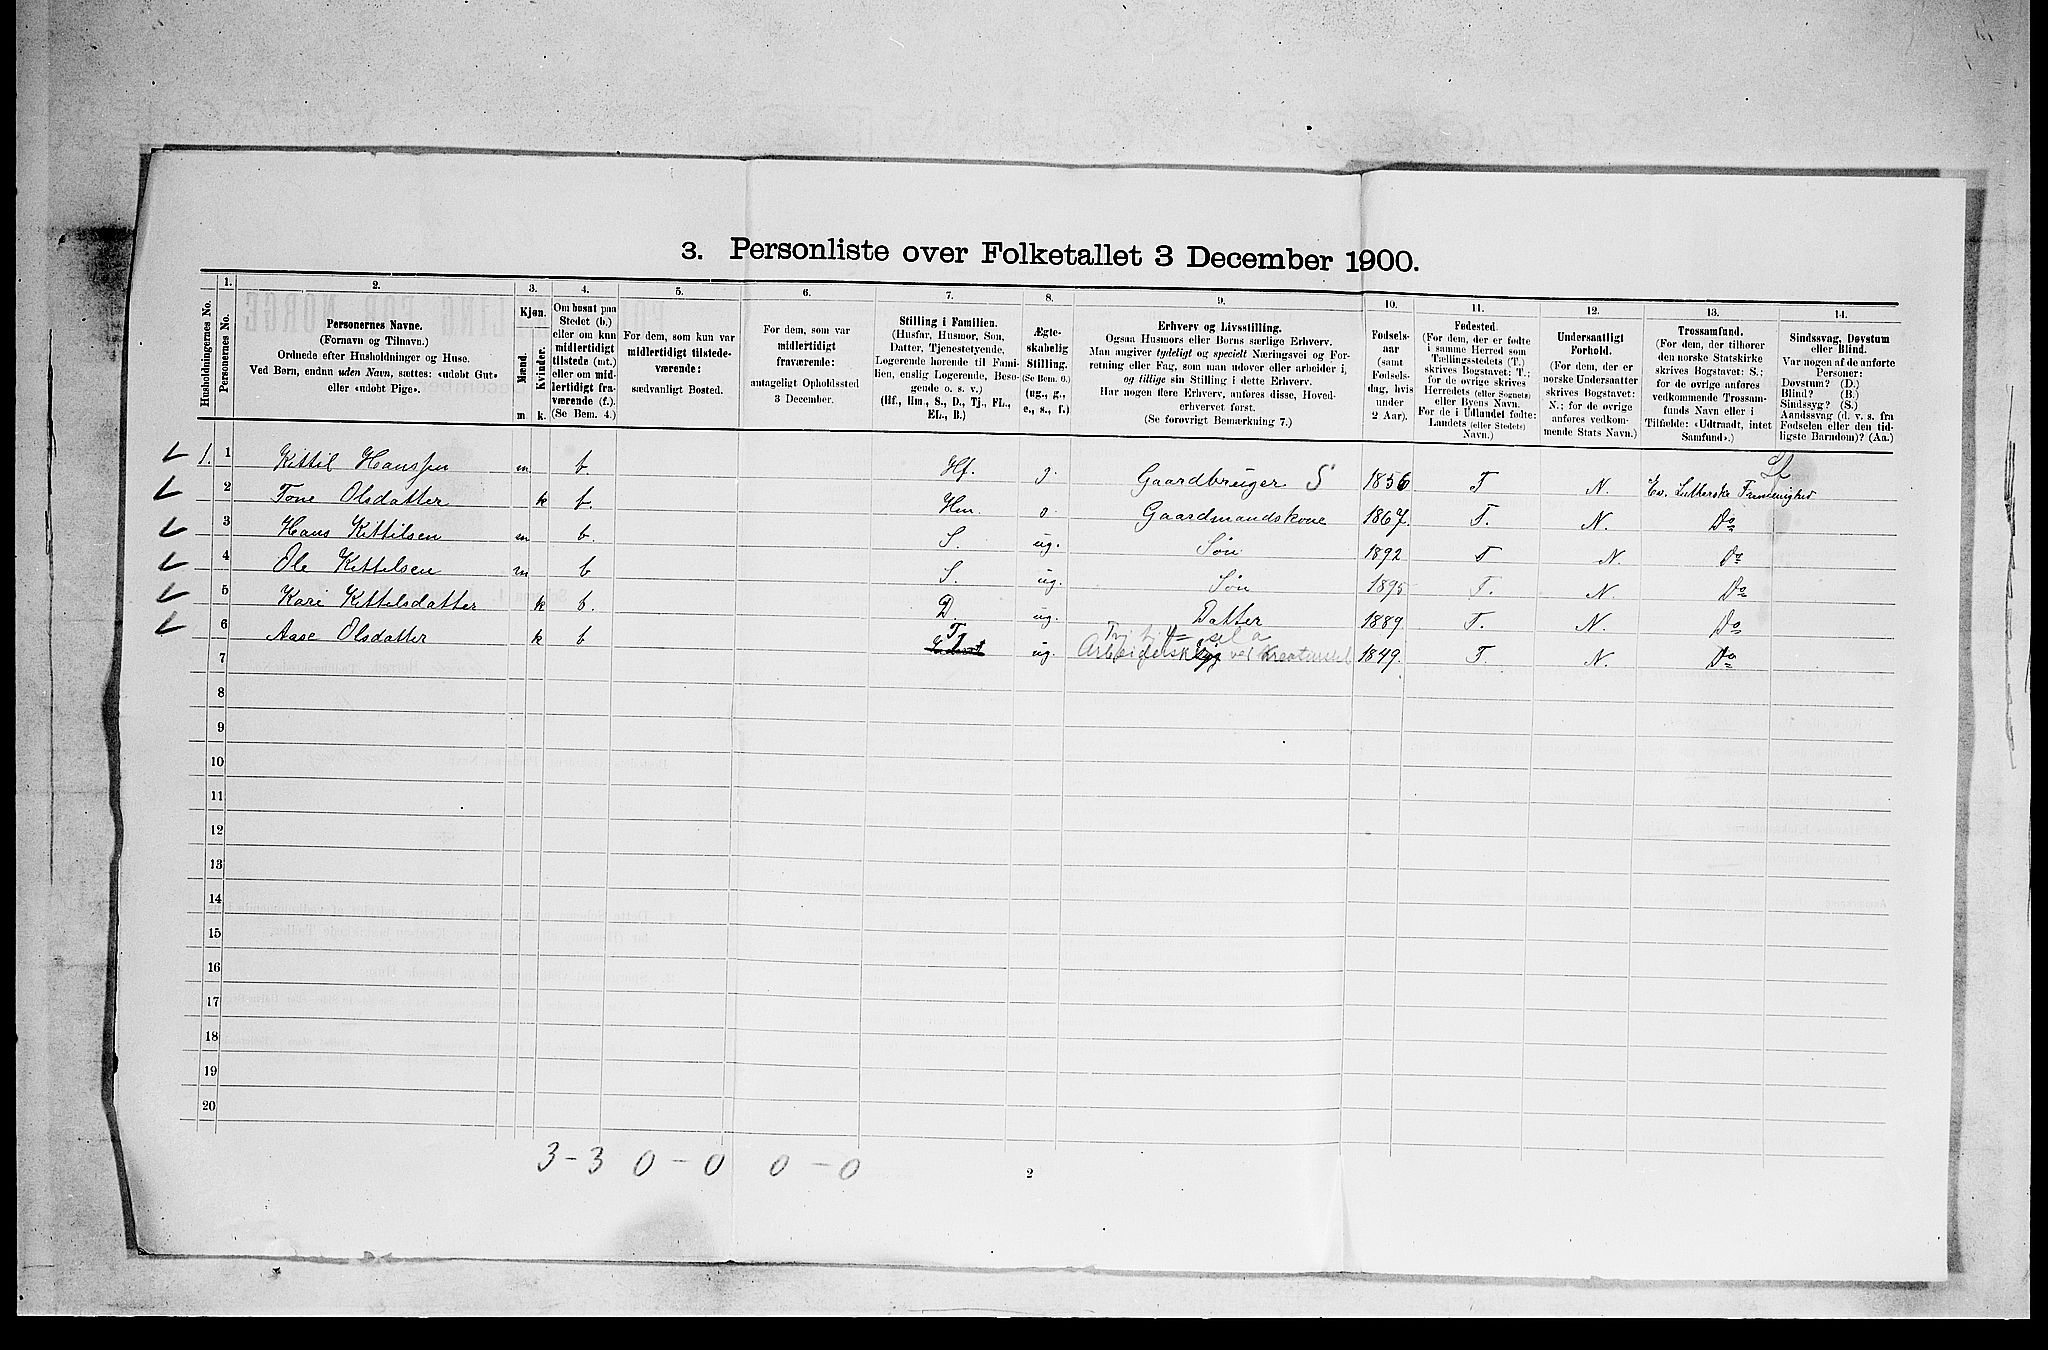 3. Personliste over Folketallet 3 December 1900.
1. 2. 3. 4. 5. 6. 7. 8. 9. 10. 11. 12. 13. 14.
Husholdningernes No.
Personernes No.
Personernes Navne.
(Fornavn og Tilnavn.)
Ordnede efter Husholdninger og Huse.
Ved Børn, endnu uden Navn, sættes: «udøbt Gut»
eller «udøbt Pige».
Kjøn.
Mænd.
Kvinder.
m. k.
Om bosat paa
Stedet (b.)
eller om kun
midlertidigt
tilstede (mt.)
eller om mid-
lertidigt fra-
værende (f.).
(Se Bem. 4.)
For dem, som kun var
midlertidigt tilstede-
værende:
sædvanligt Bosted.
For dem, som var
midlertidigt
fraværende:
antageligt Opholdssted
3 December.
Stilling i Familien.
(Husfar, Husmor, Søn,
Datter, Tjenestetyende,
Logerende hørende til Fami-
lien, enslig Logerende, Besø-
gende o. s. v.)
(Hf., Hm., S., D., Tj., FL.,
EL., B.)
Ægte-
skabelig
Stilling.
(Se Bem. 6.)
(ug., g.,
e., s., f.)
Erhverv og Livsstilling.
Ogsaa Husmors eller Børns særlige Erhverv.
Man angiver tydeligt og specielt Næringsvei og For-
retning eller Fag, som man udøver eller arbeider i,
og tillige sin Stilling i dette Erhverv.
Har nogen flere Erhverv, anføres disse, Hoved-
erhvervet først.
(Se forøvrigt Bemærkning 7.)
Fødsels-
aar
(samt
Fødsels-
dag, hvis
under
2 Aar).
Fødested.
(For dem, der er fødte
i samme Herred som
Tællingsstedets (T.)
skrives Bogstavet: T.;
for de øvrige skrives
Herredets (eller Sognets)
eller Byens Navn.
For de i Udlandet fødte:
Landets (eller Stedets)
Navn.)
Undersaatligt
Forhold.
(For dem, der er
norske Undersaatter
skrives Bogstavet:
N.; for de øvrige
anføres vedkom-
mende Stats Navn.)
Trossamfund.
(For dem, der tilhører
den norske Statskirke
skrives Bogstavet: S.;
for de øvrige anføres
vedkommende Trossam-
funds Navn eller i
Tilfælde: «Udtraadt, intet
Samfund».)
Sindssvag, Døvstum
eller Blind.
Var nogen af de anførte
Personer:
Døvstum? (D.)
Blind? (B.)
Sindssyg? (S.)
Aandssvag (d. v. s. fra
Fødselen eller den tid-
ligste Barndom)? (Aa.)
1. 1 Kittil Hanssen m b. Hf. g. Gaardbruger S 1856 T N. Ev. Lutherske Frimenighed
2 Tone Olsdatter k b. Hm. g. Gaardmandskone 1867. T. N. Do
3 Hans Kittilsen m b. S. ug. Søn 1892 T N. Do
4 Ole Kittilsen m b S. ug. Søn 1895 T. N. Do
5 Kari Kittelsdatter k b. D. ug. Datter 1889. T. N. Do
6 Aase Olsdatter k b T ug. 1849. T. N. Do
7
8
9
10
11
12
13
14
15
16
17
18
19
20
3 - 3 0 - 0 0 - 0
2